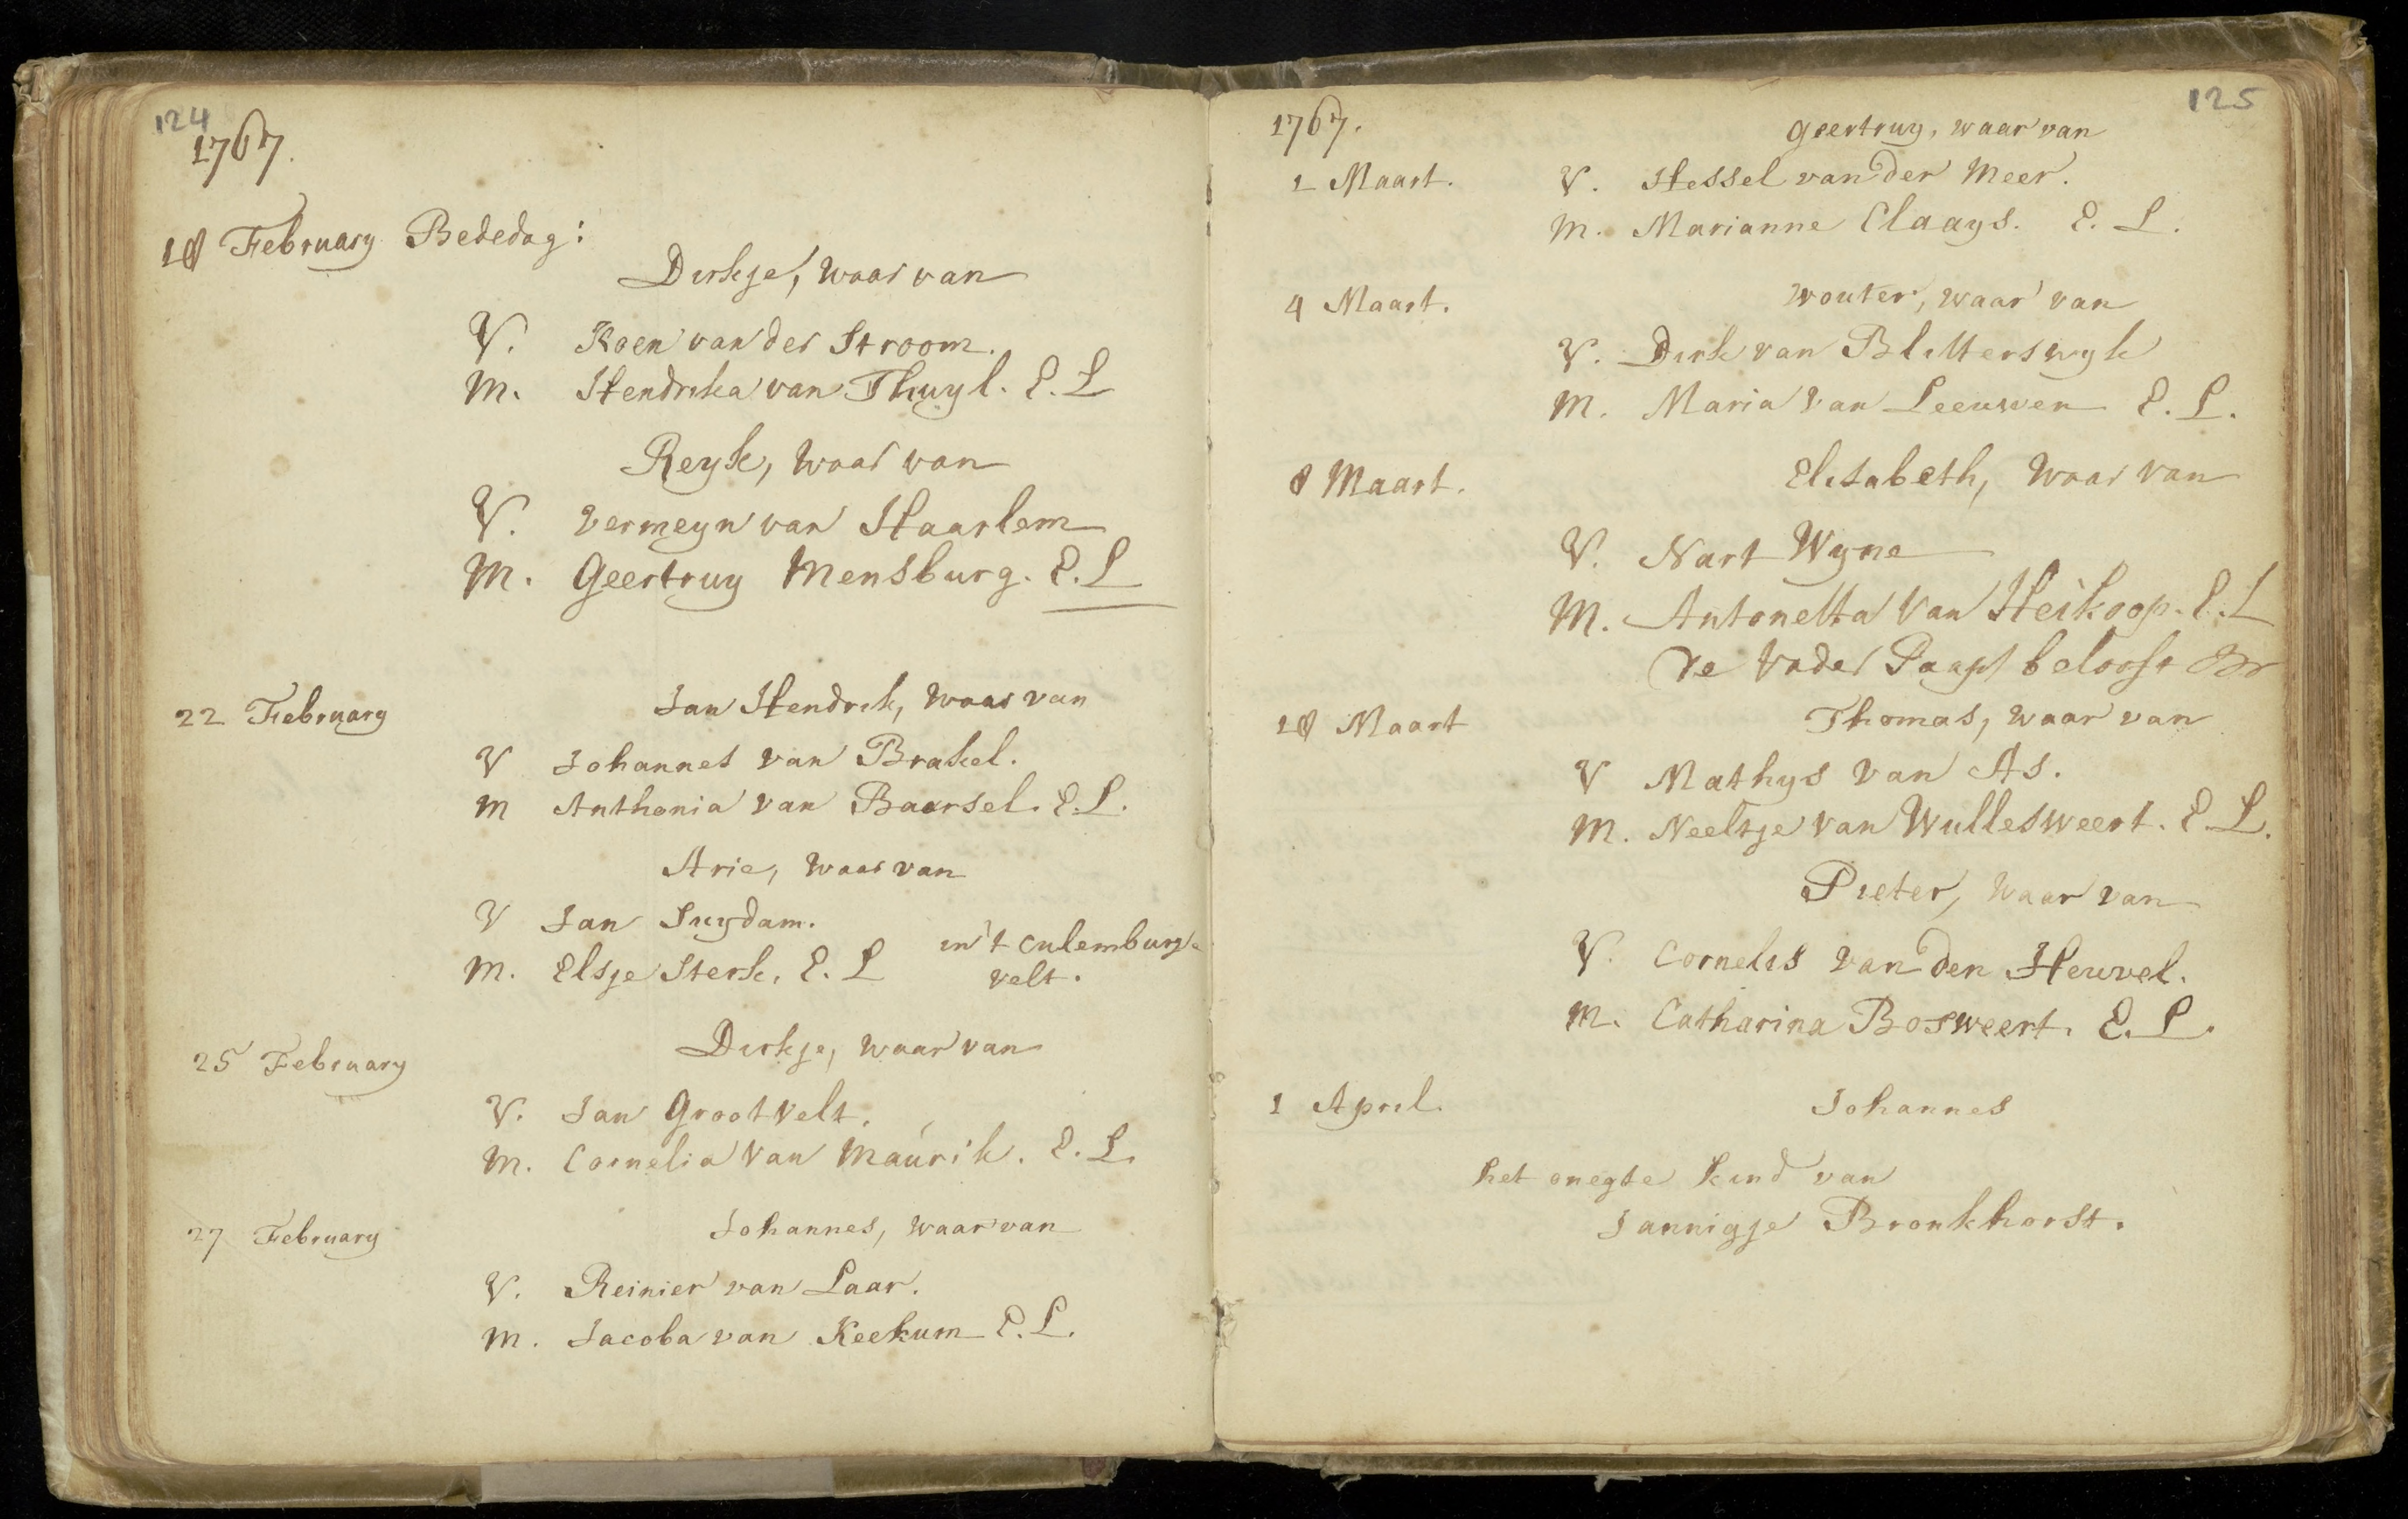 124
1767.
18 February Bededag:
Dirkje, waar van
V. Koen van der Stroom.
M. Hendrika van Thuyl. E. L
Reyk, waar van
V. Vermeyn van Haarlem
M. Geertruy Mensburg. E. L
22 February
Jan Hendrik, waar van
V Johannes van Brakel.
M Anthonia van Baarsel. E. L.
Arie, waar van
V Jan Suydam.
M. Elsje Sterk. E. L in't Culemburg
velt.
25 February
Dirkje, waar van
V. Jan Grootvelt.
M. Cornelia van Maurik. E. L.
27 February
Johannes, waar van
V. Reinier van Laar.
M. Jacoba van Keekum E. L.
125
1767.
Geertruy, waar van
1 Maart. V. Hessel van der Meer.
M. Marianne Claays. E. L.
4 Maart. Wouter, waar van
V. Dirk van Blitterswyk
M. Maria van Leeuwen E. L.
8 Maart. Elisabeth, waar van
V. Nart Wyne
M. Antonetta van Heikoop. E. L
De Vader Paaps belooft
18 Maart Thomas, waar van
V Mathys van As.
M. Neeltje van Wullesweert. E. L.
Pieter, waar van
V. Cornelis van den Heuvel.
M. Catharina Bosweert. E. L.
1 April. Johannes
het onegte kind van
Jannigje Bronkhorst.